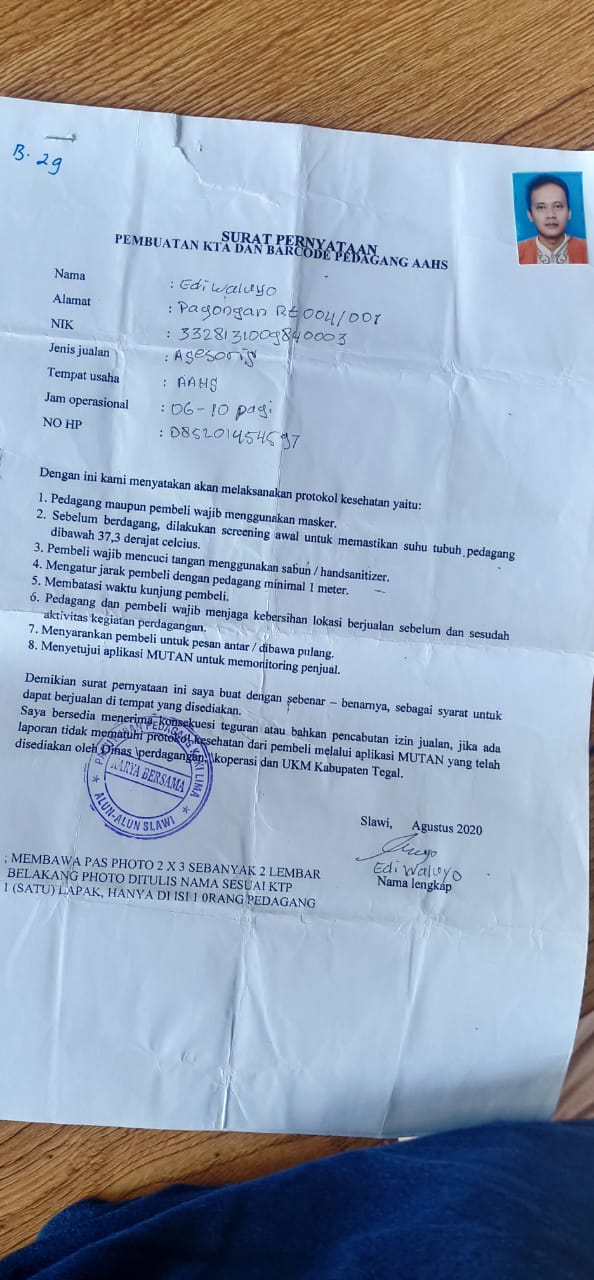 B. 29
SURAT PERNYATAAN
PEMBUATAN KTA DAN BARCODE PEDAGANG AAHS
Nama : Edi waluyo
Alamat : Pagongan Rt 004/001
NIK : 3328131009840003
Jenis jualan : Asesoris
Tempat usaha : AAHS
Jam operasional : 06-10 pagi
NO HP : 085201454597
Dengan ini kami menyatakan akan melaksanakan protokol kesehatan yaitu:
1. Pedagang maupun pembeli wajib menggunakan masker.
2. Sebelum berdagang, dilakukan screening awal untuk memastikan suhu tubuh pedagang
dibawah 37,3 derajat celcius.
3. Pembeli wajib mencuci tangan menggunakan sabun / handsanitizer.
4. Mengatur jarak pembeli dengan pedagang minimal 1 meter.
5. Membatasi waktu kunjung pembeli.
6. Pedagang dan pembeli wajib menjaga kebersihan lokasi berjualan sebelum dan sesudah
aktivitas kegiatan perdagangan.
7. Menyarankan pembeli untuk pesan antar / dibawa pulang.
8. Menyetujui aplikasi MUTAN untuk memonitoring penjual.
Demikian surat pernyataan ini saya buat dengan sebenar – benarnya, sebagai syarat untuk
dapat berjualan di tempat yang disediakan.
Saya bersedia menerima konsekuesi teguran atau bahkan pencabutan izin jualan, jika ada
laporan tidak mematuhi protokol kesehatan dari pembeli melalui aplikasi MUTAN yang telah
disediakan oleh Dinas \perdagangan, \koperasi dan UKM Kabupaten Tegal.
PEDAGANG KAKI LIMA
KARYA BERSAMA
ALUN-ALUN SLAWI
Slawi, Agustus 2020
Edi Waluyo
Nama lengkap
; MEMBAWA PAS PHOTO 2 X 3 SEBANYAK 2 LEMBAR
BELAKANG PHOTO DITULIS NAMA SESUAI KTP
1 (SATU) LAPAK, HANYA DI ISI 1 0RANG PEDAGANG